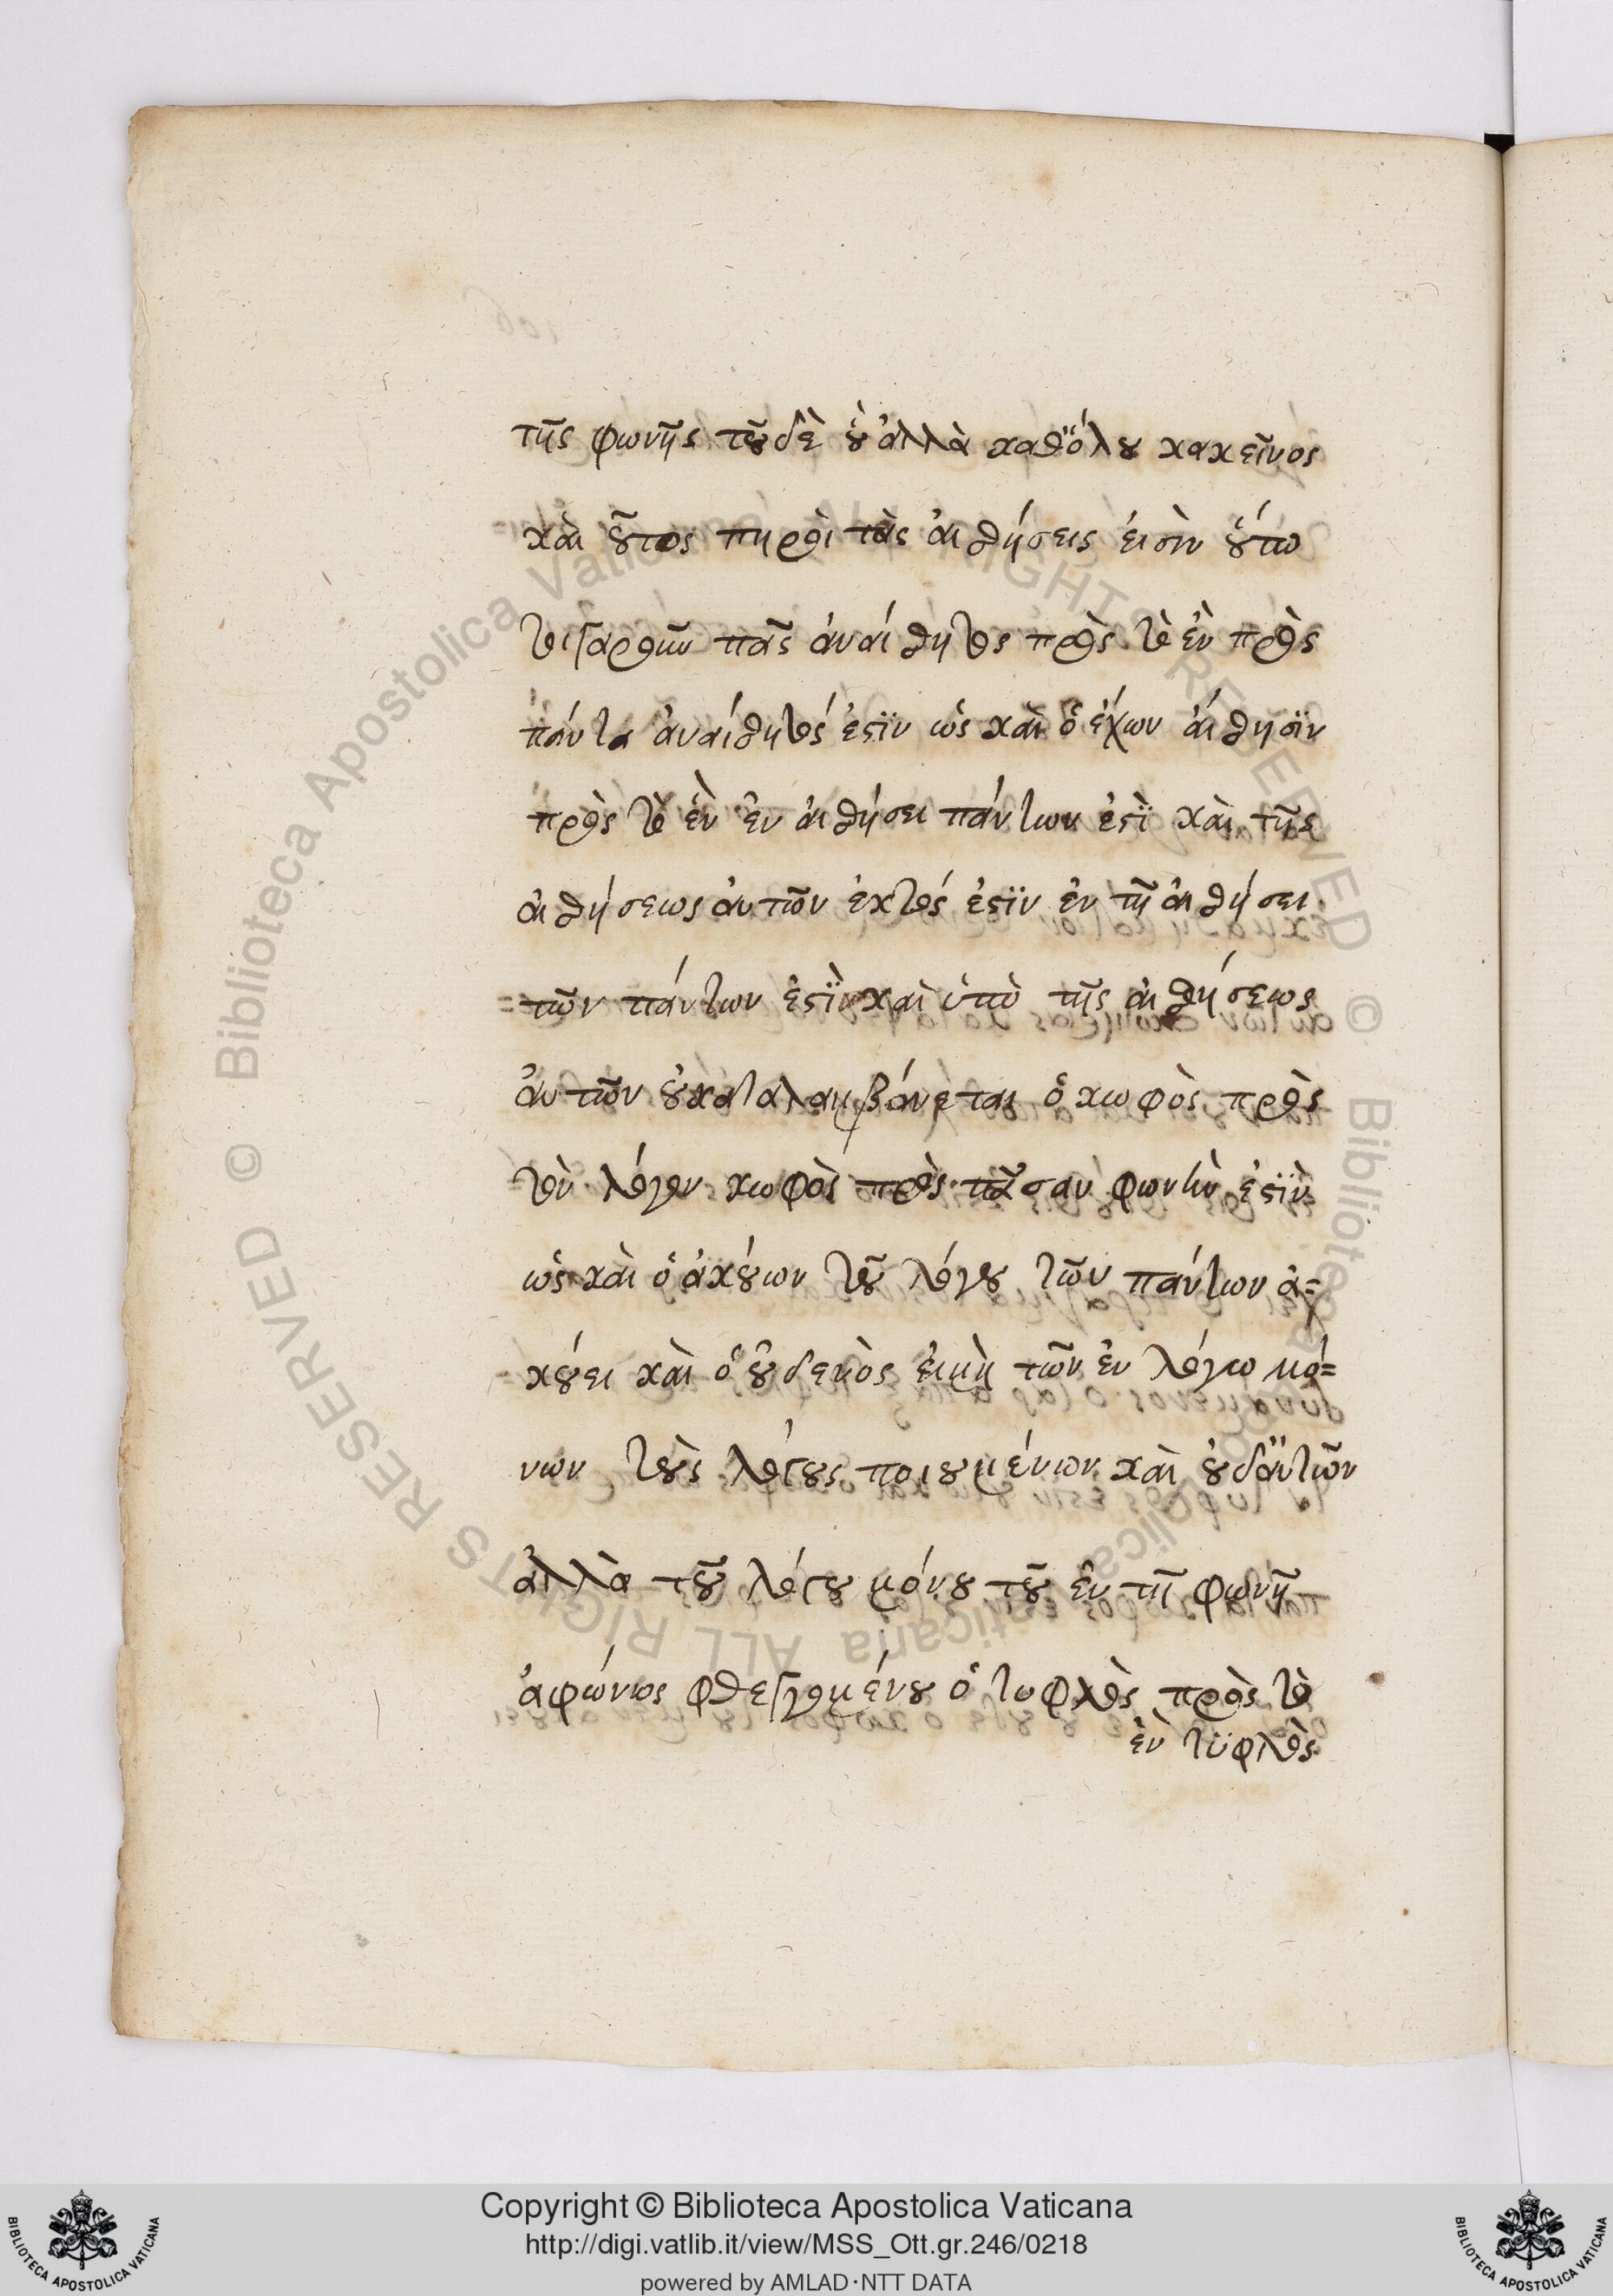 τῆς φωνῆς τοῦδὲ οὐ ἀλλὰ καθ' ὅλου κακεῖνος
καὶ οὗτος πηροὶ τὰς αἰσθήσεις εἰσὶν οὕτω
τοιγαροῦν πᾶς ἀναίσθητος πρὸς τὸ ἓν πρὸς
πάντα ἀναίσθητός ἐστιν ὡς καὶ ὁ ἔχων αἴσθησιν
πρὸς τὸ ἓν ἐν αἰσθήσει πάντων ἐστὶ καὶ τῆς
αἰσθήσεως αὐτῶν ἐκτός ἐστιν ἐν τῇ αἰσθήσει
τῶν πάντων ἐστὶν καὶ ὑπὸ τῆς αἰσθήσεως
αὐτῶν οὐ καταλαμβάνεται ὁ κωφὸς πρὸς
τὸν λόγον κωφὸς πρὸς πᾶσαν φωνὴν ἐστὶν
ὡς καὶ ὁ ἀκούων τοῦ λόγου τῶν πάντων ἀ=
κούει καὶ ὁ οὐδενὸς εἰ μὴ τῶν ἐν λόγω μό=
νων τοὺς λόγους ποιουμένων καὶ οὐδ' αὐτῶν
ἀλλὰ τοῦ λόγου μόνου τοῦ ἐν τῇ φωνῇ
ἀφώνως φθεγγομένου ὁ τυφλὸς πρὸς τὸ
ἓν τυφλὸς
Copyright © Biblioteca Apostolica Vaticana
http://digi.vatlib.it/view/MSS_Ott.gr.246/0218
powered by AMLAD·NTT DATA
BIBLIOTECA APOSTOLICA VATICANA
BIBLIOTECA APOSTOLICA VATICANA
© Biblioteca Apostolica Vaticana ALL RIGHTS RESERVED
© Biblioteca Apostolica Vaticana ALL RIGHTS RESERVED